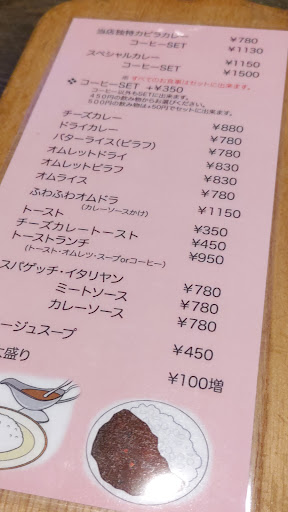 当店独特カピラカレー ¥780
コーヒーSET ¥1130
スペシャルカレー ¥1150
コーヒーSET ¥1500
※ すべてのお食事はセットに出来ます。
❖ コーヒーSET +¥350
コーヒー以外もSETに出来ます。
450円の飲み物からお選びください。
500円の飲み物は+50円でセットに出来ます。
チーズカレー ¥880
ドライカレー ¥780
バターライス(ピラフ) ¥780
オムレットドライ ¥830
オムレットピラフ ¥830
オムライス ¥830
ふわふわオムドラ ¥1150
(カレーソースかけ)
トースト ¥350
チーズカレートースト ¥450
トーストランチ ¥950
(トースト・オムレツ・スープorコーヒー)
スパゲッチ・イタリヤン ¥780
ミートソース ¥780
カレーソース ¥780
ージュスープ ¥450
盛り ¥100増